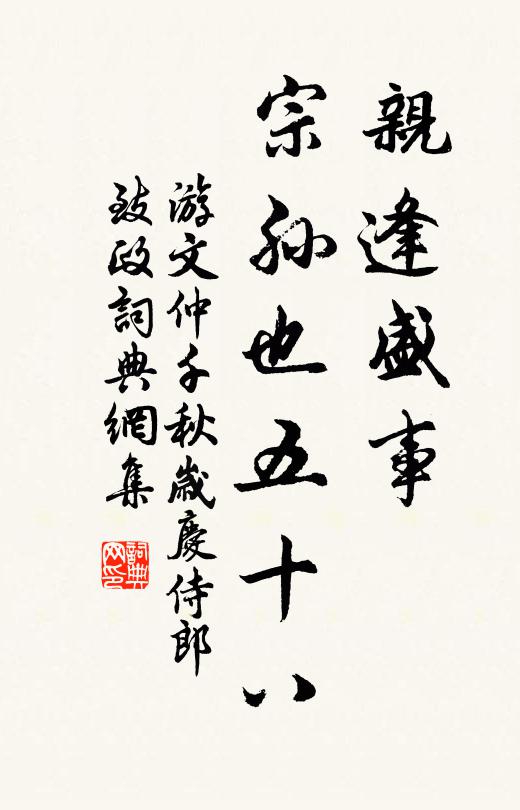 親逢盛事
宗孫也五十八
游文仲千秋歲慶侍郎
致政詞典網集
詞典
网印